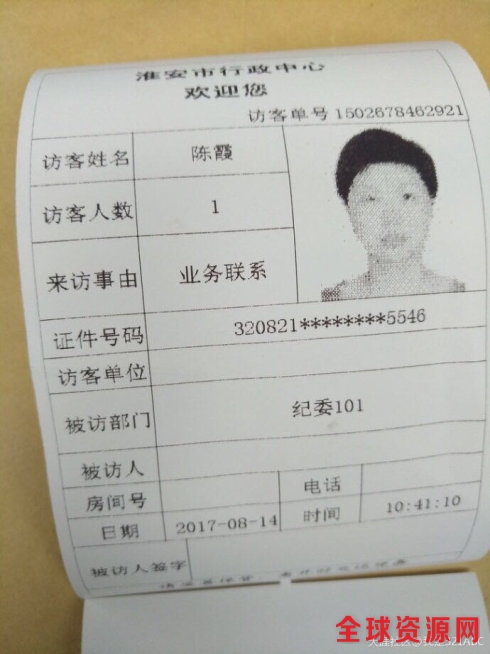 淮安市行政中心
欢迎您
访客单号 1502678462921
访客姓名 陈霞
访客人数 1
来访事由 业务联系
证件号码 320821********5546
访客单位
被访部门 纪委101
被访人
房间号 电话
日期 2017-08-14 时间 10:41:10
被访人签字
全球资源网